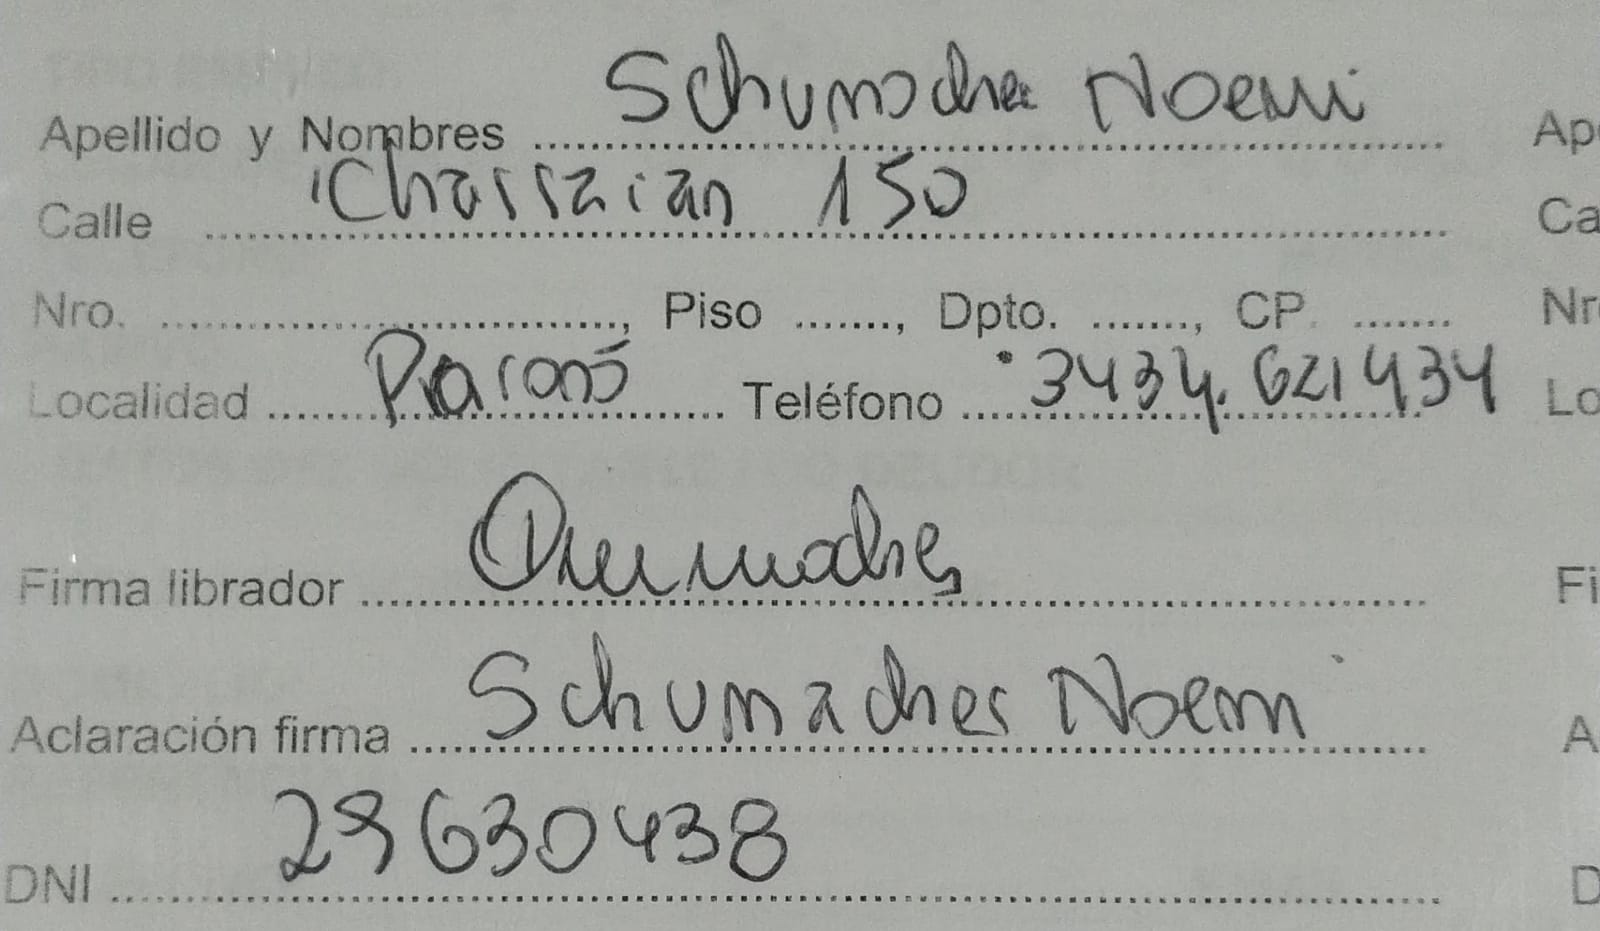 Apellido y Nombres Schumacher Noemi Ap
Calle Chassaian 150 Ca
Nro. ...................., Piso ........, Dpto. ........, CP. ........ Nr
Localidad Paraná Teléfono 3434.621434 Lo
Firma librador Fi
Aclaración firma Schumacher Noemi A
DNI 29630438 D